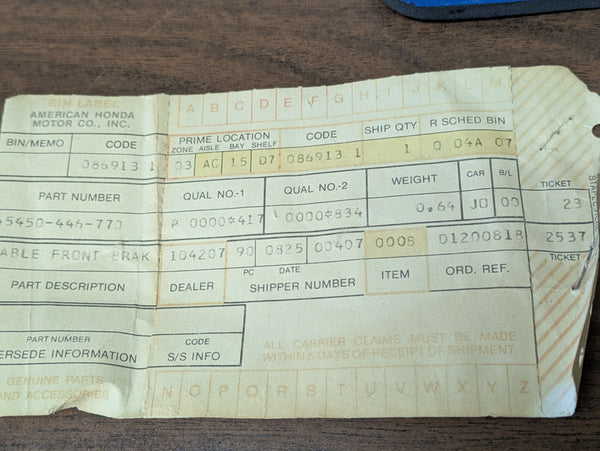 BIN LABEL
AMERICAN HONDA
MOTOR CO., INC.
A B C D E F G H I J K L M
BIN/MEMO
PRIME LOCATION CODE SHIP QTY R SCHED BIN
ZONE AISLE BAY SHELF
086913 1 03 AC 15 07 086913 1 1 0 04A 07
PART NUMBER QUAL NO.-1 QUAL NO.-2 WEIGHT CAR B/L TICKET
45450-446-770 P 0000*417 0000*834 0.64 JO 00 23
ABLE FRONT BRAK 104207 90 0825 00407 0008 01200818 2537
PC DATE TICKET
PART DESCRIPTION DEALER SHIPPER NUMBER ITEM ORD. REF.
PART NUMBER CODE
ERSEDE INFORMATION S/S INFO
ALL CARRIER CLAIMS MUST BE MADE
WITHIN 5 DAYS OF RECEIPT OF SHIPMENT.
GENUINE PARTS
AND ACCESSORIES
N O P Q R S T U V W X Y Z